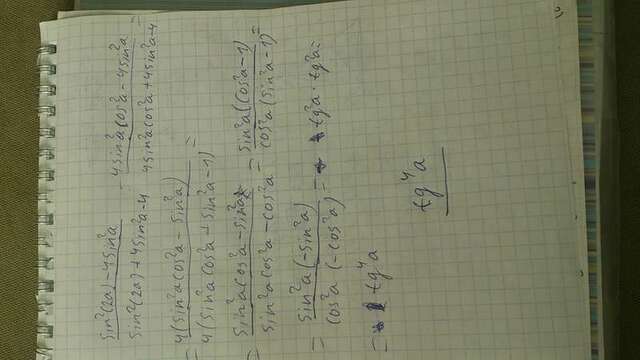 (sin²(2a) - 4sin²a)/(sin²(2a) + 4sin²a - 4) = (4sin²a cos²a - 4sin²a)/(4sin²a cos²a + 4sin²a - 4) =
= 4(sin²a cos²a - sin²a)/4(sin²a cos²a + sin²a - 1) =
= (sin²a cos²a - sin²a)/(sin²a cos²a - cos²a) = sin²a(cos²a - 1)/cos²a(sin²a - 1) =
= sin²a(-sin²a)/cos²a(-cos²a) = tg²a · tg²a =
= tg⁴a
tg⁴a